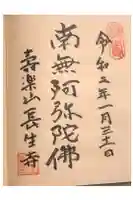 令和二年一月三十一日
南無阿弥陀佛
寿楽山長生寺